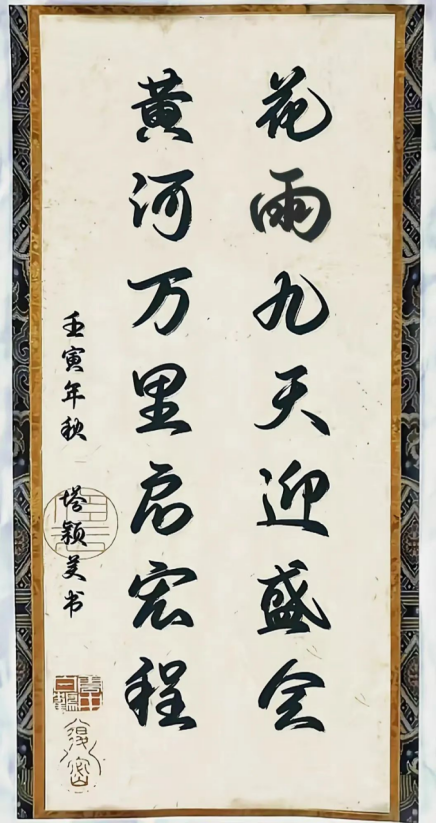 花雨九天迎盛会
黄河万里启宏程
壬寅年秋 塔颖美书